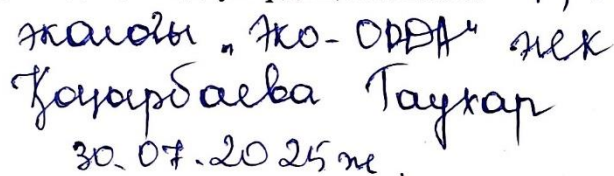 экологы „Эко-ОРДА" жек
Қаңарбаева Гаухар
30.07.2025 ж.